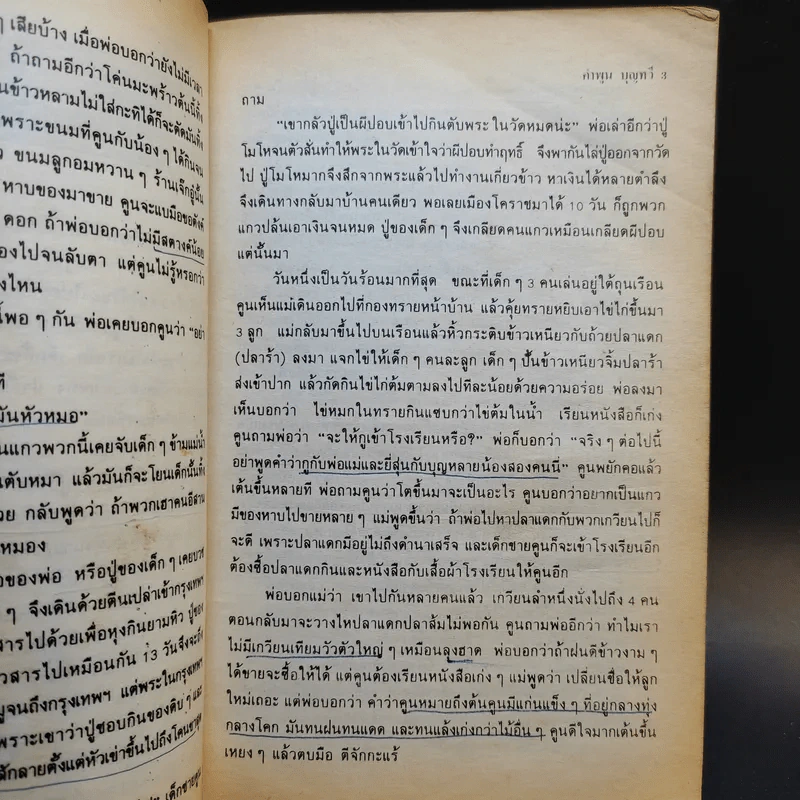 ๆ เสียบ้าง เมื่อพ่อบอกว่ายังไม่มีเวลา
ถ้าถามอีกว่าโค่นมะพร้าวต้นนี้ทิ้ง
ข้าวหลามไม่ใส่กะทิได้ก็จะตัดมันทิ้ง
เพราะขนมที่คูนกับน้อง ๆ ได้กินจน
ขนมลูกอมหวาน ๆ ร้านเจ๊กอู๋นั้น
หาบของมาขาย คูนจะแบมือขอตังค์
ดอก ถ้าพ่อบอกว่าไม่มีสตางค์น้อย
องไปจนลับตา แต่คูนไม่รู้หรอกว่า
ไหน
นี้พอ ๆ กัน พ่อเคยบอกคูนว่า “อย่า
ที
มันหัวหมอ”
แกวพวกนี้เคยจับเด็ก ๆ ข้ามแม่น้ำ
ตับหมา แล้วมันก็จะโยนเด็กนั้นทิ้ง
กลับพูดว่า ถ้าพวกเฮาคนอีสาน
หมอง
ของพ่อ หรือปู่ของเด็ก ๆ เคยบวช
ๆ จึงเดินด้วยตีนเปล่าเข้ากรุงเทพฯ
สารไปด้วยเพื่อหุงกินยามหิว ปู่ของ
วสารไปเหมือนกัน 13 วันจึงจะถึง
จนถึงกรุงเทพฯ แต่พระในกรุงเทพฯ
เพราะเขาว่าปู่ชอบกินของดิบ ๆ และ
สักลายตั้งแต่หัวเข่าขึ้นไปถึงโคนขาสุด
เด็กชายคูน
คำพูน บุญทวี 3
ถาม
“เขากลัวปู่เป็นผีปอบเข้าไปกินตับพระ ในวัดหมดน่ะ” พ่อเล่าอีกว่าปู่
โมโหจนตัวสั่นทำให้พระในวัดเข้าใจว่าผีปอบทำฤทธิ์ จึงพากันไล่ปู่ออกจากวัด
ไป ปู่โมโหมากจึงสึกจากพระแล้วไปทำงานเกี่ยวข้าว หาเงินได้หลายตำลึง
จึงเดินทางกลับมาบ้านคนเดียว พอเลยเมืองโคราชมาได้ 10 วัน ก็ถูกพวก
แกวปล้นเอาเงินจนหมด ปู่ของเด็ก ๆ จึงเกลียดคนแกวเหมือนเกลียดผีปอบ
แต่นั้นมา
วันหนึ่งเป็นวันร้อนมากที่สุด ขณะที่เด็ก ๆ 3 คนเล่นอยู่ใต้ถุนเรือน
คูนเห็นแม่เดินออกไปที่กองทรายหน้าบ้าน แล้วคุ้ยทรายหยิบเอาไข่ไก่ขึ้นมา
3 ลูก แม่กลับมาขึ้นไปบนเรือนแล้วหิ้วกระติบข้าวเหนียวกับถ้วยปลาแดก
(ปลาร้า) ลงมา แจกไข่ให้เด็ก ๆ คนละลูก เด็ก ๆ ปั้นข้าวเหนียวจิ้มปลาร้า
ส่งเข้าปาก แล้วกัดกินไข่ไก่ต้มตามลงไปทีละน้อยด้วยความอร่อย พ่อลงมา
เห็นบอกว่า ไข่หมกในทรายกินแซบกว่าไข่ต้มในน้ำ เรียนหนังสือก็เก่ง
คูนถามพ่อว่า “จะให้กูเข้าโรงเรียนหรือ?” พ่อก็บอกว่า “จริง ๆ ต่อไปนี้
อย่าพูดคำว่ากูกับพ่อแม่และยี่สุ่นกับบุญหลายน้องสองคนนี่” คูนพยักคอแล้ว
เต้นขึ้นหลายที พ่อถามคูนว่าโตขึ้นมาจะเป็นอะไร คูนบอกว่าอยากเป็นแกว
มีของหาบไปขายหลาย ๆ แม่พูดขึ้นว่า ถ้าพ่อไปหาปลาแดกกับพวกเกวียนไปก็
จะดี เพราะปลาแดกมีอยู่ไม่ถึงดำนาเสร็จ และเด็กชายคูนก็จะเข้าโรงเรียนอีก
ต้องซื้อปลาแดกกินและหนังสือกับเสื้อผ้าโรงเรียนให้คูนอีก
พ่อบอกแม่ว่า เขาไปกันหลายคนแล้ว เกวียนลำหนึ่งนั่งไปถึง 4 คน
ตอนกลับมาจะวางไหปลาแดกปลาส้มไม่พอกัน คูนถามพ่ออีกว่า ทำไมเรา
ไม่มีเกวียนเทียมวัวตัวใหญ่ ๆ เหมือนลุงฮาด พ่อบอกว่าถ้าฝนดีข้าวงาม ๆ
ได้ขายจะซื้อให้ได้ แต่คูนต้องเรียนหนังสือเก่ง ๆ แม่พูดว่า เปลี่ยนชื่อให้ลูก
ใหม่เถอะ แต่พ่อบอกว่า คำว่าคูนหมายถึงต้นคูนมีแก่นแข็ง ๆ ที่อยู่กลางทุ่ง
กลางโคก มันทนฝนทนแดด และทนแล้งเก่งกว่าไม้อื่น ๆ คูนดีใจมากเต้นขึ้น
เหยง ๆ แล้วตบมือ ตีจักกะแร้